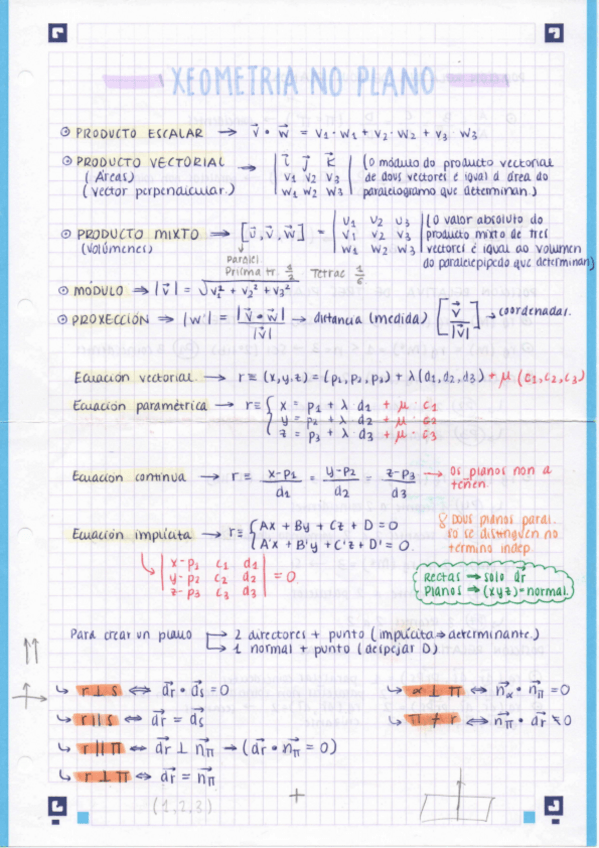 XEOMETRIA NO PLANO
⊙ PRODUCTO ESCALAR → v⃗ • w⃗ = v1 · w1 + v2 · w2 + v3 w3
⊙ PRODUCTO VECTORIAL → | i⃗ j⃗ k⃗ | (O módulo do producto vectorial
(Áreas) | v1 v2 v3 | de dous vectores é igual á área do
(vector perpendicular.) | w1 w2 w3 | paralelogramo que determinan.)
⊙ PRODUCTO MIXTO → [u⃗, v⃗, w⃗] = | u1 u2 u3 | (O valor absoluto do
(Volúmenes) | v1 v2 v3 | producto mixto de tres
| w1 w2 w3 | vectores é igual ao volumen
do paralelepípedo que determinan)
Paralel.
Prisma tr. 1/2 Tetrae 1/6
⊙ MÓDULO → |v⃗| = √v1² + v2² + v3²
⊙ PROXECCIÓN ⇒ |w'| = |v⃗ • w⃗| / |v⃗| → distancia (medida) [v⃗ / |v⃗|] → coordenadas.
Ecuación vectorial → r ≡ (x,y,z) = (p1, p2, p3) + λ(d1, d2, d3) + μ (c1, c2, c3)
Ecuación paramétrica → r ≡ { x = p1 + λ d1 + μ · c1
y = p2 + λ d2 + μ · c2
z = p3 + λ · d3 + μ · c3
Ecuación continua → r ≡ x-p1 / d1 = y-p2 / d2 = z-p3 / d3 → os planos non a
teñen.
Ecuación implícita → r ≡ { Ax + By + Cz + D = 0
A'x + B'y + C'z + D' = 0
Dous planos paral.
so se distinguen no
término indep.
| x-p1 c1 d1 |
| y-p2 c2 d2 | = 0
| z-p3 c3 d3 |
Rectas → solo d⃗r
Planos → (xyz) = normal.
Para crear un plano → 2 directores + punto (implícita ⇒ determinante.)
→ 1 normal + punto (despejar D)
↳ r ⊥ s ⇔ d⃗r • d⃗s = 0
↳ α ⊥ π ⇔ n⃗α • n⃗π = 0
↳ r ∥ s ⇔ d⃗r = d⃗s
↳ π ≠ r ⇔ n⃗π • d⃗r ≠ 0
↳ r ∥ π ⇔ d⃗r ⊥ n⃗π → (d⃗r • n⃗π = 0)
↳ r ⊥ π ⇔ d⃗r = n⃗π
(1,2,3)